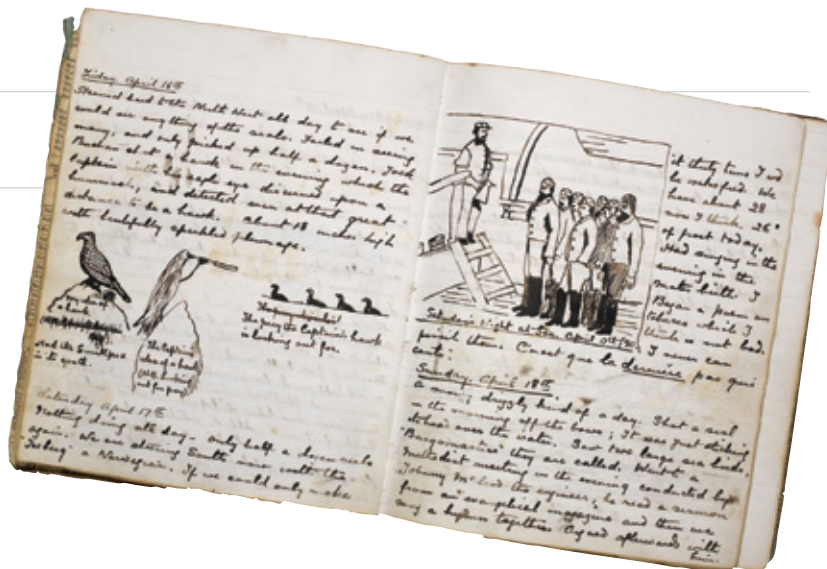 Friday April 16th
Steamed hard to the North West all day to see if we
could see anything of the seals. Failed in seeing
many, and only picked up half a dozen. Took
Buchan at a hawk in the evening which the
Captain with his eagle eye discerned upon a
hummock, and detected even at that great
distance to be a hawk. About 18 inches high
with beautifully speckled plumage.
a hawk
And the Smallpiece
is to
The Captain
idea of a hawk
looking
out for prey
The prey the Captain's hawk
is looking out for.
Saturday April 17th
Nothing doing all day. only half a dozen seals
again. We are steering South now with the
a Norwegian. If we could only make
it thirty tons I'd
be satisfied. We
have about 28
now I think. 26°
of frost today.
Had singing in the
evening in the
mate's berth. I
Began a poem on
tobacco which I
think is not bad.
I never can
Saturday night at Sea April
finish them. C'est que la dernière pas qui
coute.
Sunday April 18th
a nasty drizzly kind of a day. Shot a seal
in the morning off the bows; It was just sticking
its head over the water. Saw two large sea birds
"Burgomasters" they are called. Went to a
Methodist meeting in the evening conducted by
Johnny McLeod the engineer; he read a sermon
from an evangelical magazine and then we
sung a hymn together. Argued afterwards with
him.